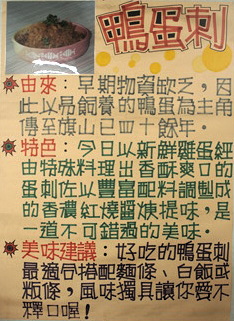 鴨蛋刺
由來：早期物資缺乏，因
此以易飼養的鴨蛋為主角
傳至旗山已四十餘年。
特色：今日以新鮮雞蛋經
由特殊料理出香酥爽口的
蛋刺佐以豐富配料調製成
的香濃紅燒醬燴提味，是
一道不可錯過的美味。
美味建議：好吃的鴨蛋刺
最適合搭配麵條、白飯或
粄條，風味獨具讓你愛不
釋口喔！